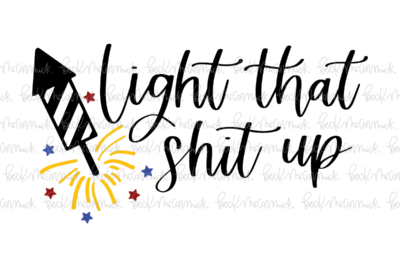 light that
shit up